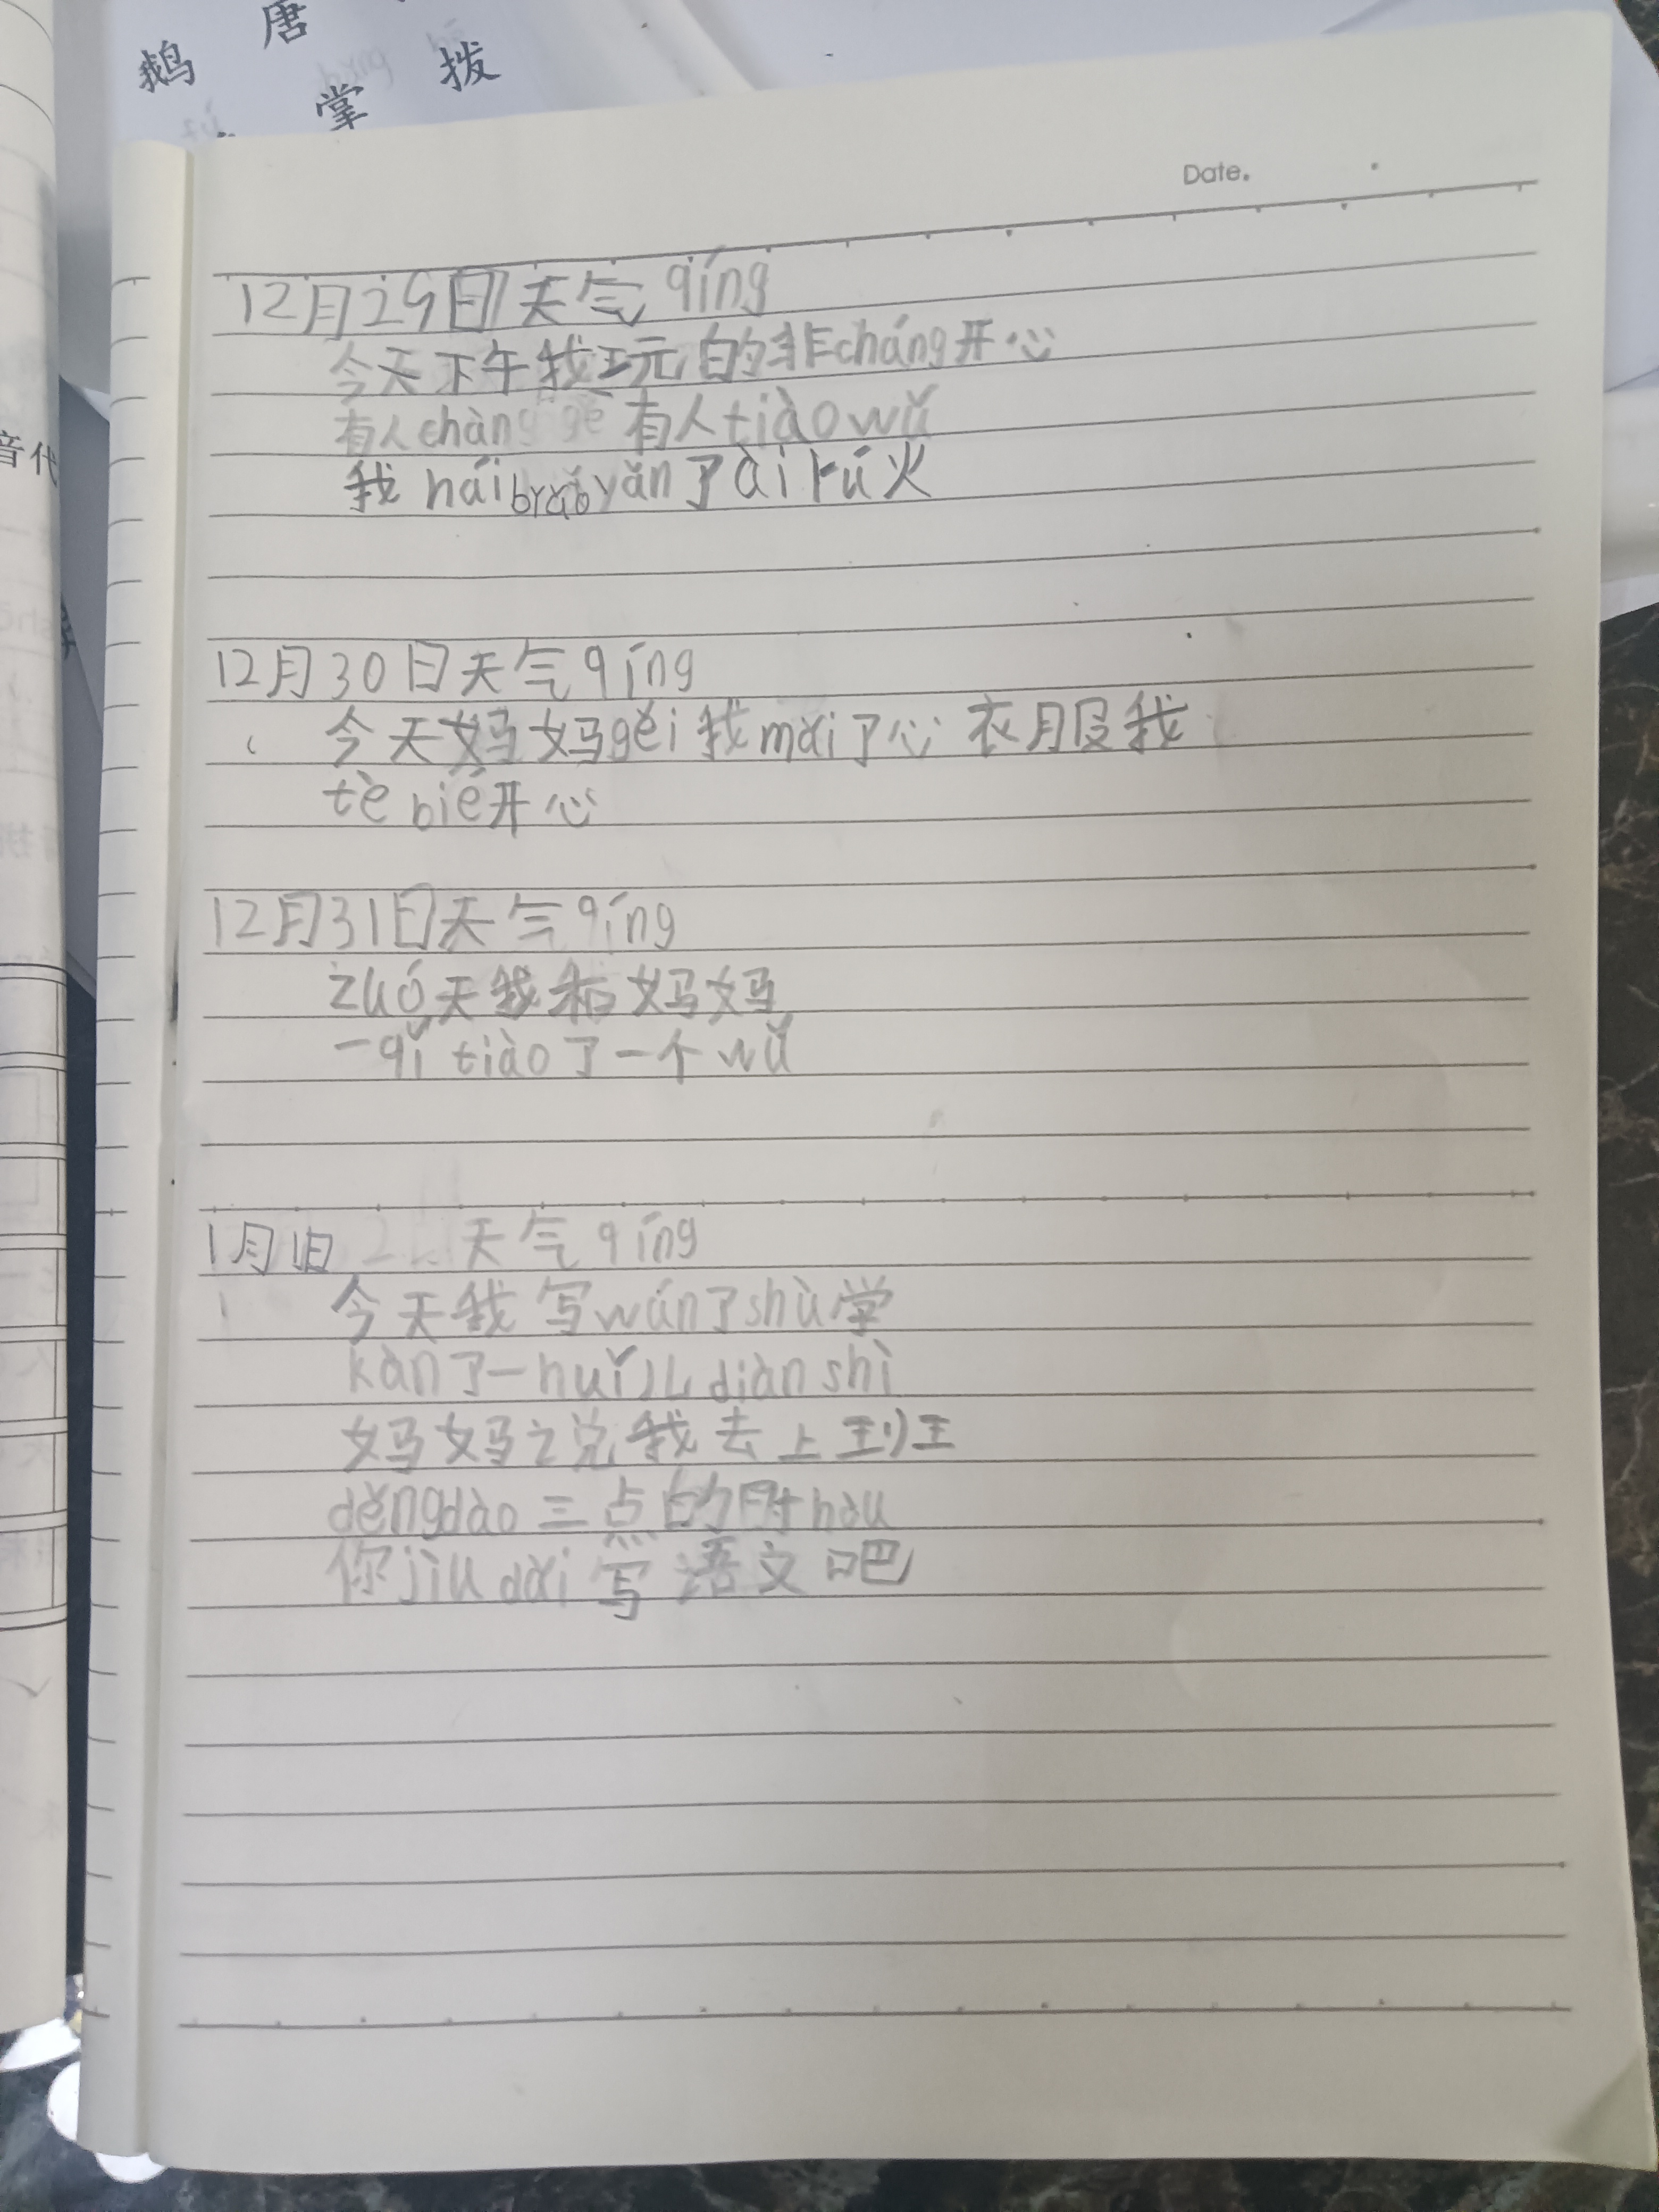 鹅 唐
掌 拨
音代
Date.
12月29日天气qíng
今天下午我玩的非cháng开心
有人chàng gē有人tiào wǔ
我hái biǎo yǎn了ài rú火
12月30日天气qíng
今天妈妈gěi我mǎi了心衣服我
tè bié开心
12月31日天气qíng
zuó天我和妈妈
一qǐ tiào了一个wǔ
1月1日 天气qíng
今天我写wán了shù学
kàn了一huǐ儿diàn shì
妈妈说我去上
děng dào三点的时hòu
你jiù dǎi写语文吧